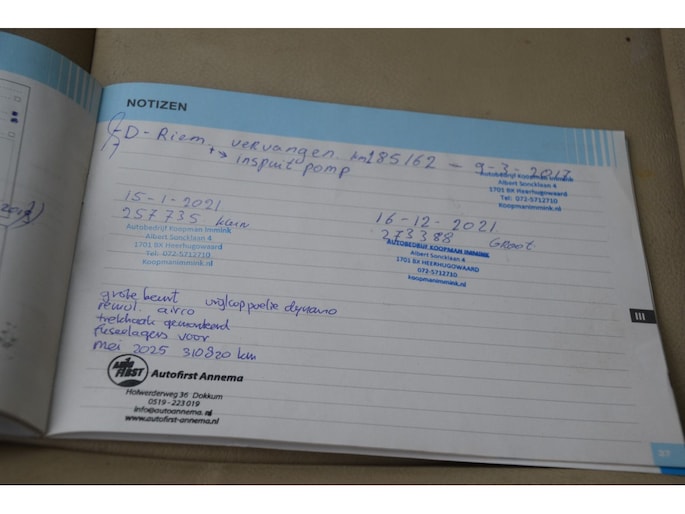 NOTIZEN
D-Riem vervangen km 185162 - 9-3-2017
+ inspuit pomp
Autobedrijf Koopman Immink
Albert Soncklaan 4
1701 BX Heerhugowaard
Tel: 072-5712710
Koopmanimmink.nl
15-1-2021
257735 klein
Autobedrijf Koopman Immink
Albert Soncklaan 4
1701 BX Heerhugowaard
Tel: 072-5712710
Koopmanimmink.nl
16-12-2021
273388 Groot
AUTOBEDRIJF KOOPMAN IMMINK
Albert Soncklaan 4
1701 BX HEERHUGOWAARD
072-5712710
koopmanimmink.nl
grote beurt vrijloappoelie dynamo
airco
trekhaak gemonteerd
fuseelagers voor
mei 2025 310820 km
FIRST
Autofirst Annema
Holwerderweg 36 Dokkum
0519 - 223019
info@autoannema.nl
www.autofirst-annema.nl
III
37